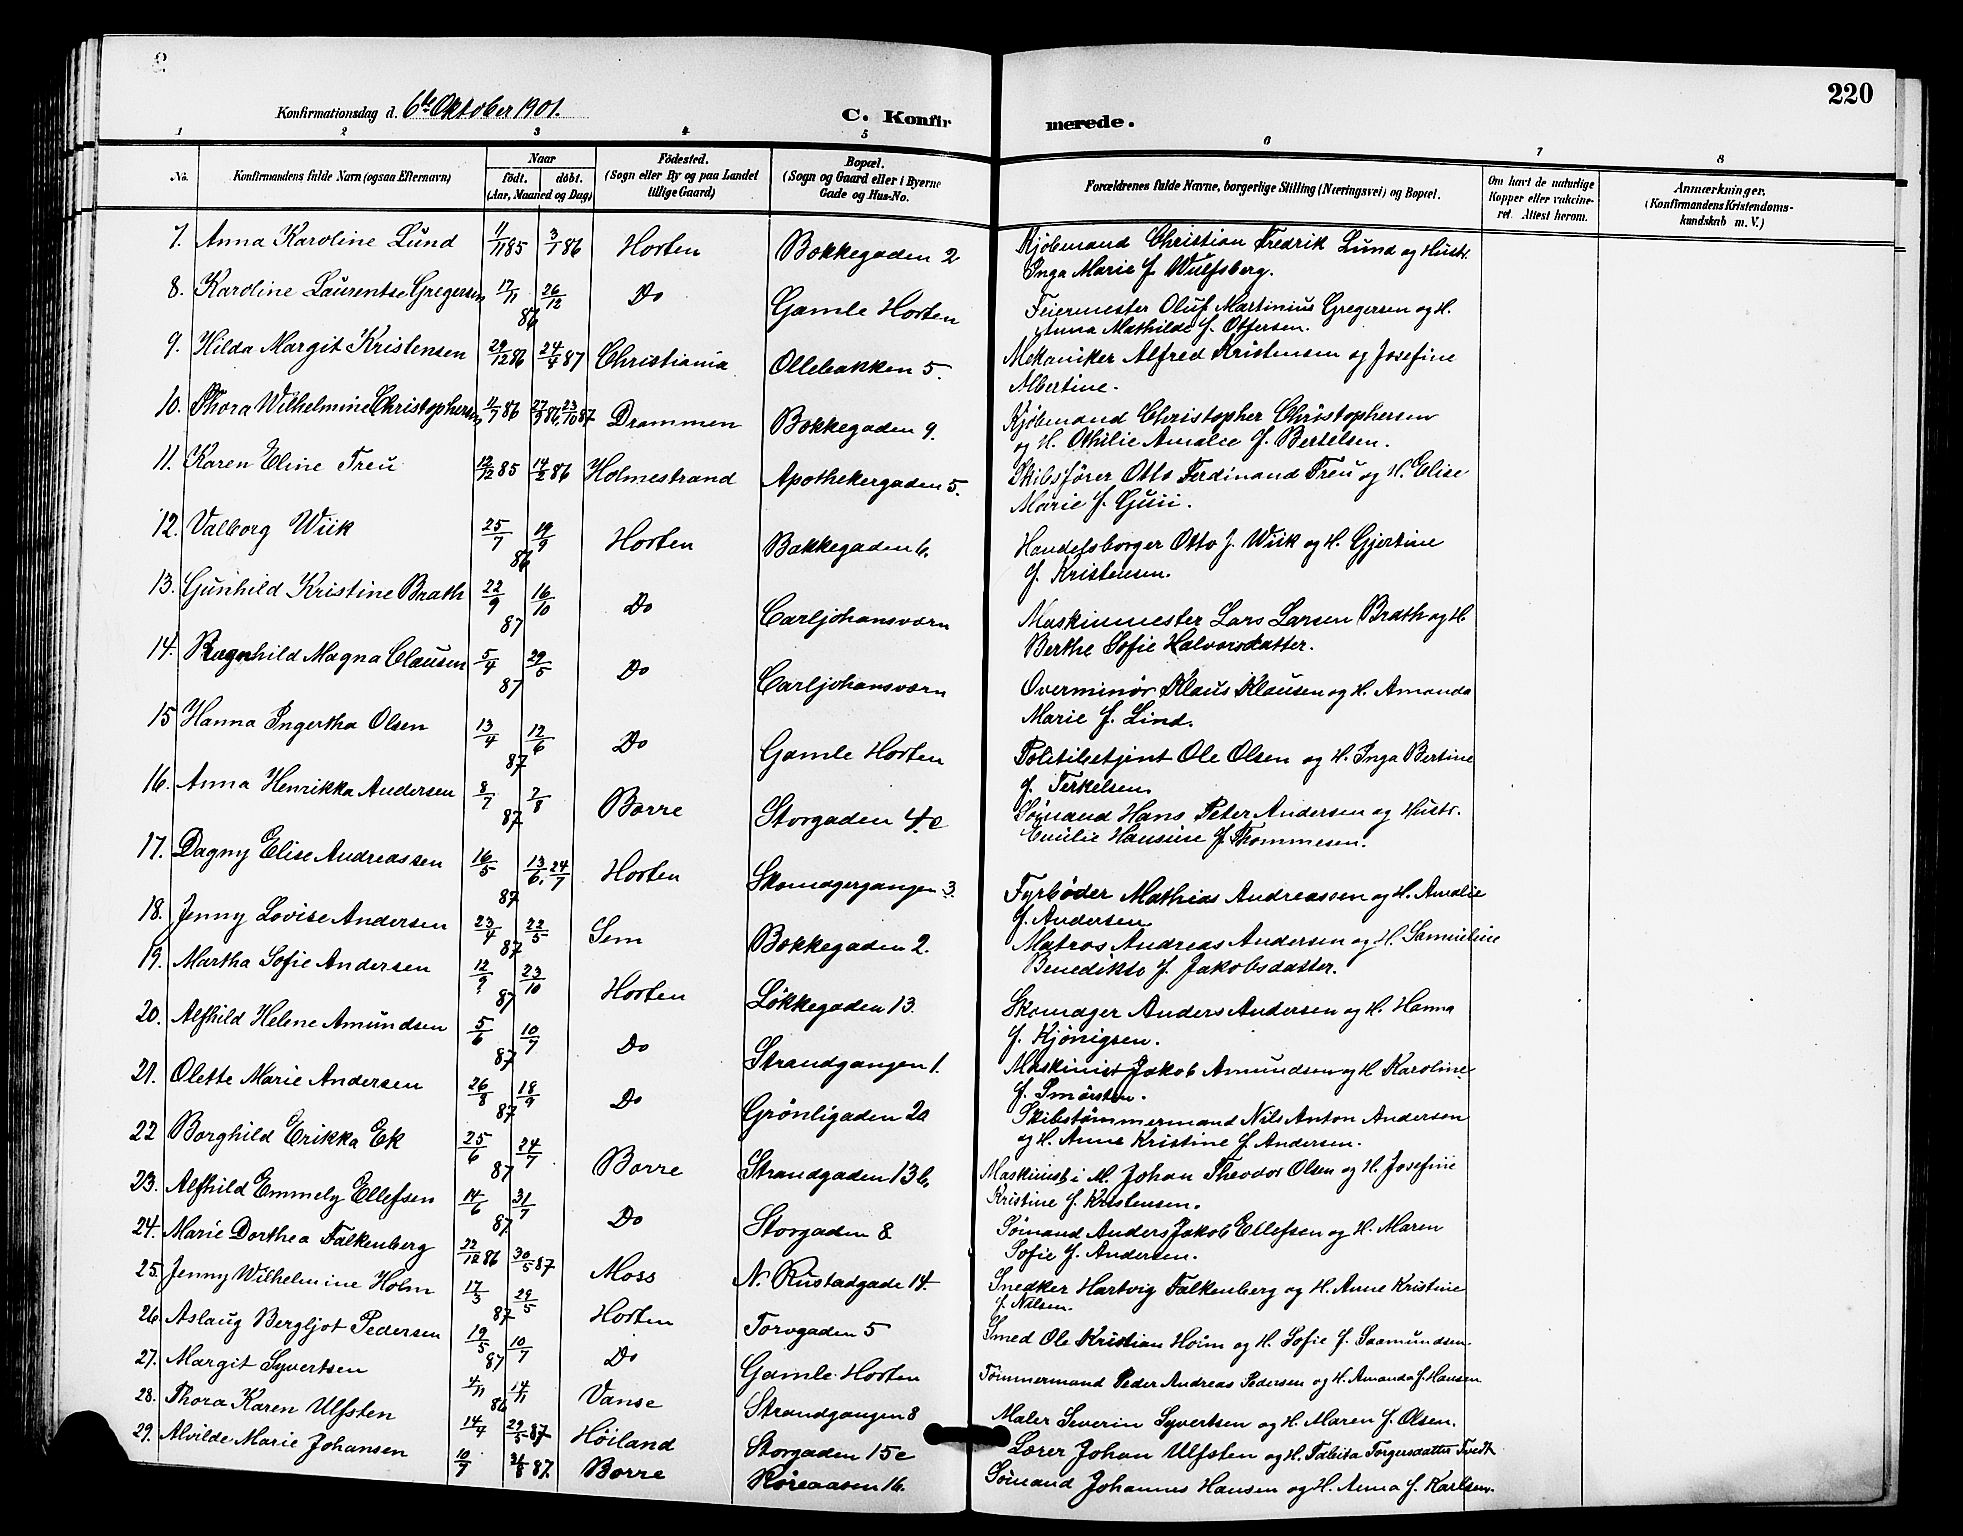 220
Konfirmationsdag d. 6te Oktober 1901.
C. Konfirmerede.
1 2 3 4 5 6 7 8
No.
Konfirmandens fulde Navn (ogsaa Efternavn)
Naar
født. døbt.
(Aar, Maaned og Dag)
Fødested.
(Sogn eller By og paa Landet
tillige Gaard)
Bopæl.
(Sogn og Gaard eller i Byerne
Gade og Hus-No.
Forældrenes fulde Navne, borgerlige Stilling (Næringsvei) og Bopæl.
Om havt de naturlige
Kopper eller vakcine-
ret. Attest herom.
Anmærkninger.
(Konfirmandens Kristendoms-
kundskab m. V.)
7. Anna Karoline Lund 11/11 85 3/1 86 Horten Bakkegaden 2 Kjøbmand Christian Fredrik Lund og Hustr.
Inga Marie f. Wulfsberg.
8. Karoline Laurentse Gregersen 17/11 26/12 86 Do Gamle Horten Feiermester Oluf Martinius Gregersen og H.
Anna Mathilde f. Ottersen.
9. Hilda Margit Kristensen 29/12 86 24/4 87 Christiania Ollebakken 5. Mekaniker Alfred Kristensen og Josefine
Albertine.
10. Thora Wilhelmine Christophersen 11/7 86 27/9 86, 23/10 87 Drammen Bakkegaden 9. Kjøbmand Christopher Christophersen
og H. Othilie Amalie f. Bertelsen.
11. Karen Eline Treu 12/12 85 14/2 86 Holmestrand Apothekergaden 5. Skibsfører Otto Ferdinand Treu og H. Elise
Marie f.
12. Valborg Wiik 25/7 19/9 86 Horten Bakkegaden 6. Handelsborger Otto J. Wiik og H. Gjertine
f. Kristensen.
13. Gunhild Kristine Brath 22/9 16/10 87 Do Carljohansværn Maskinmester Lars Larsen Brath og H.
Berthe Sofie Halvorsdatter.
14. Ragnhild Magna Clausen 5/4 29/5 87 Do Carljohansværn Overminør Klaus Klausen og H. Amanda
Marie f. Lind.
15 Hanna Ingertha Olsen 13/4 12/6 87 Do Gamle Horten Politibetjent Ole Olsen og H. Inga Bertine
f. Terkelsen.
16. Anna Henrikka Andersen 8/7 7/8 87 Borre Storgaden 4c Sømand Hans Peter Andersen og Hustr.
Emilie Hansine f. Thommesen.
17. Dagny Elise Andreassen 16/5 13/6, 24/7 87 Horten Skomagergangen 3. Fyrbøder Mathias Andreassen og H. Amalie
f. Andersen
18. Jenny Lovise Andersen 23/4 22/5 87 Sem Bakkegaden 2. Matros Andreas Andersen og H. Samueline
Benedikte f. Jakobsdatter.
19. Martha Sofie Andersen 12/9 23/10 87 Horten Løkkegaden 13. Skomager Anders Andersen og H. Hanna
f. Kjønigsen.
20. Alfhild Helene Amundsen 5/6 10/7 87 Do Strandgangen 1. Maskinist Jakob Amundsen og H. Karoline
f. Smørsten.
21. Olette Marie Andersen 26/8 18/9 87 Do Grønligaden 2a Skibstømmermand Nils Anton Andersen
og H. Anne Kristine f. Andersen.
22 Borghild Erikka Ek 25/6 24/7 87 Borre Strandgaden 13b. Maskinist i M. Johan Theodor Olsen og H. Josefine
Kristine f. Kristensen.
23. Alfhild Emmely Ellefsen 14/6 31/7 87 Do Storgaden 8 Sømand Anders Jakob Ellefsen og H. Maren
Sofie f. Andersen.
24. Marie Dorthea Falkenberg 22/12 86 30/5 87 Moss N. Rustadgade 14. Snedker Hartvig Falkenberg og H. Anne Kristine
f. Nilsen.
25. Jenny Wilhelmine Holm 17/3 29/5 87 Horten Torvgaden 5 Smed Ole Kristian Holm og H. Sofie f. Saamundsen.
26. Aslaug Bergljot Pedersen 19/5 10/7 87 Do Gamle Horten Tømmermand Peder Andreas Pedersen og H. Amanda f. Hansen
27. Margit Syvertsen 4/11 14/11 86 Vanse Strandgangen 8 Maler Severin Syvertsen og H. Maren f. Olsen.
28. Thora Karen Ulfsten 14/4 29/5 87 Høiland Storgaden 15c Lærer Johan Ulfsten og H. Tabita Torgersdatter Tvedt
29. Alvilde Marie Johansen 10/7 21/8 87. Borre Røreaasen 16. Sømand Johannes Hansen og H. Anna f. Karlsen.